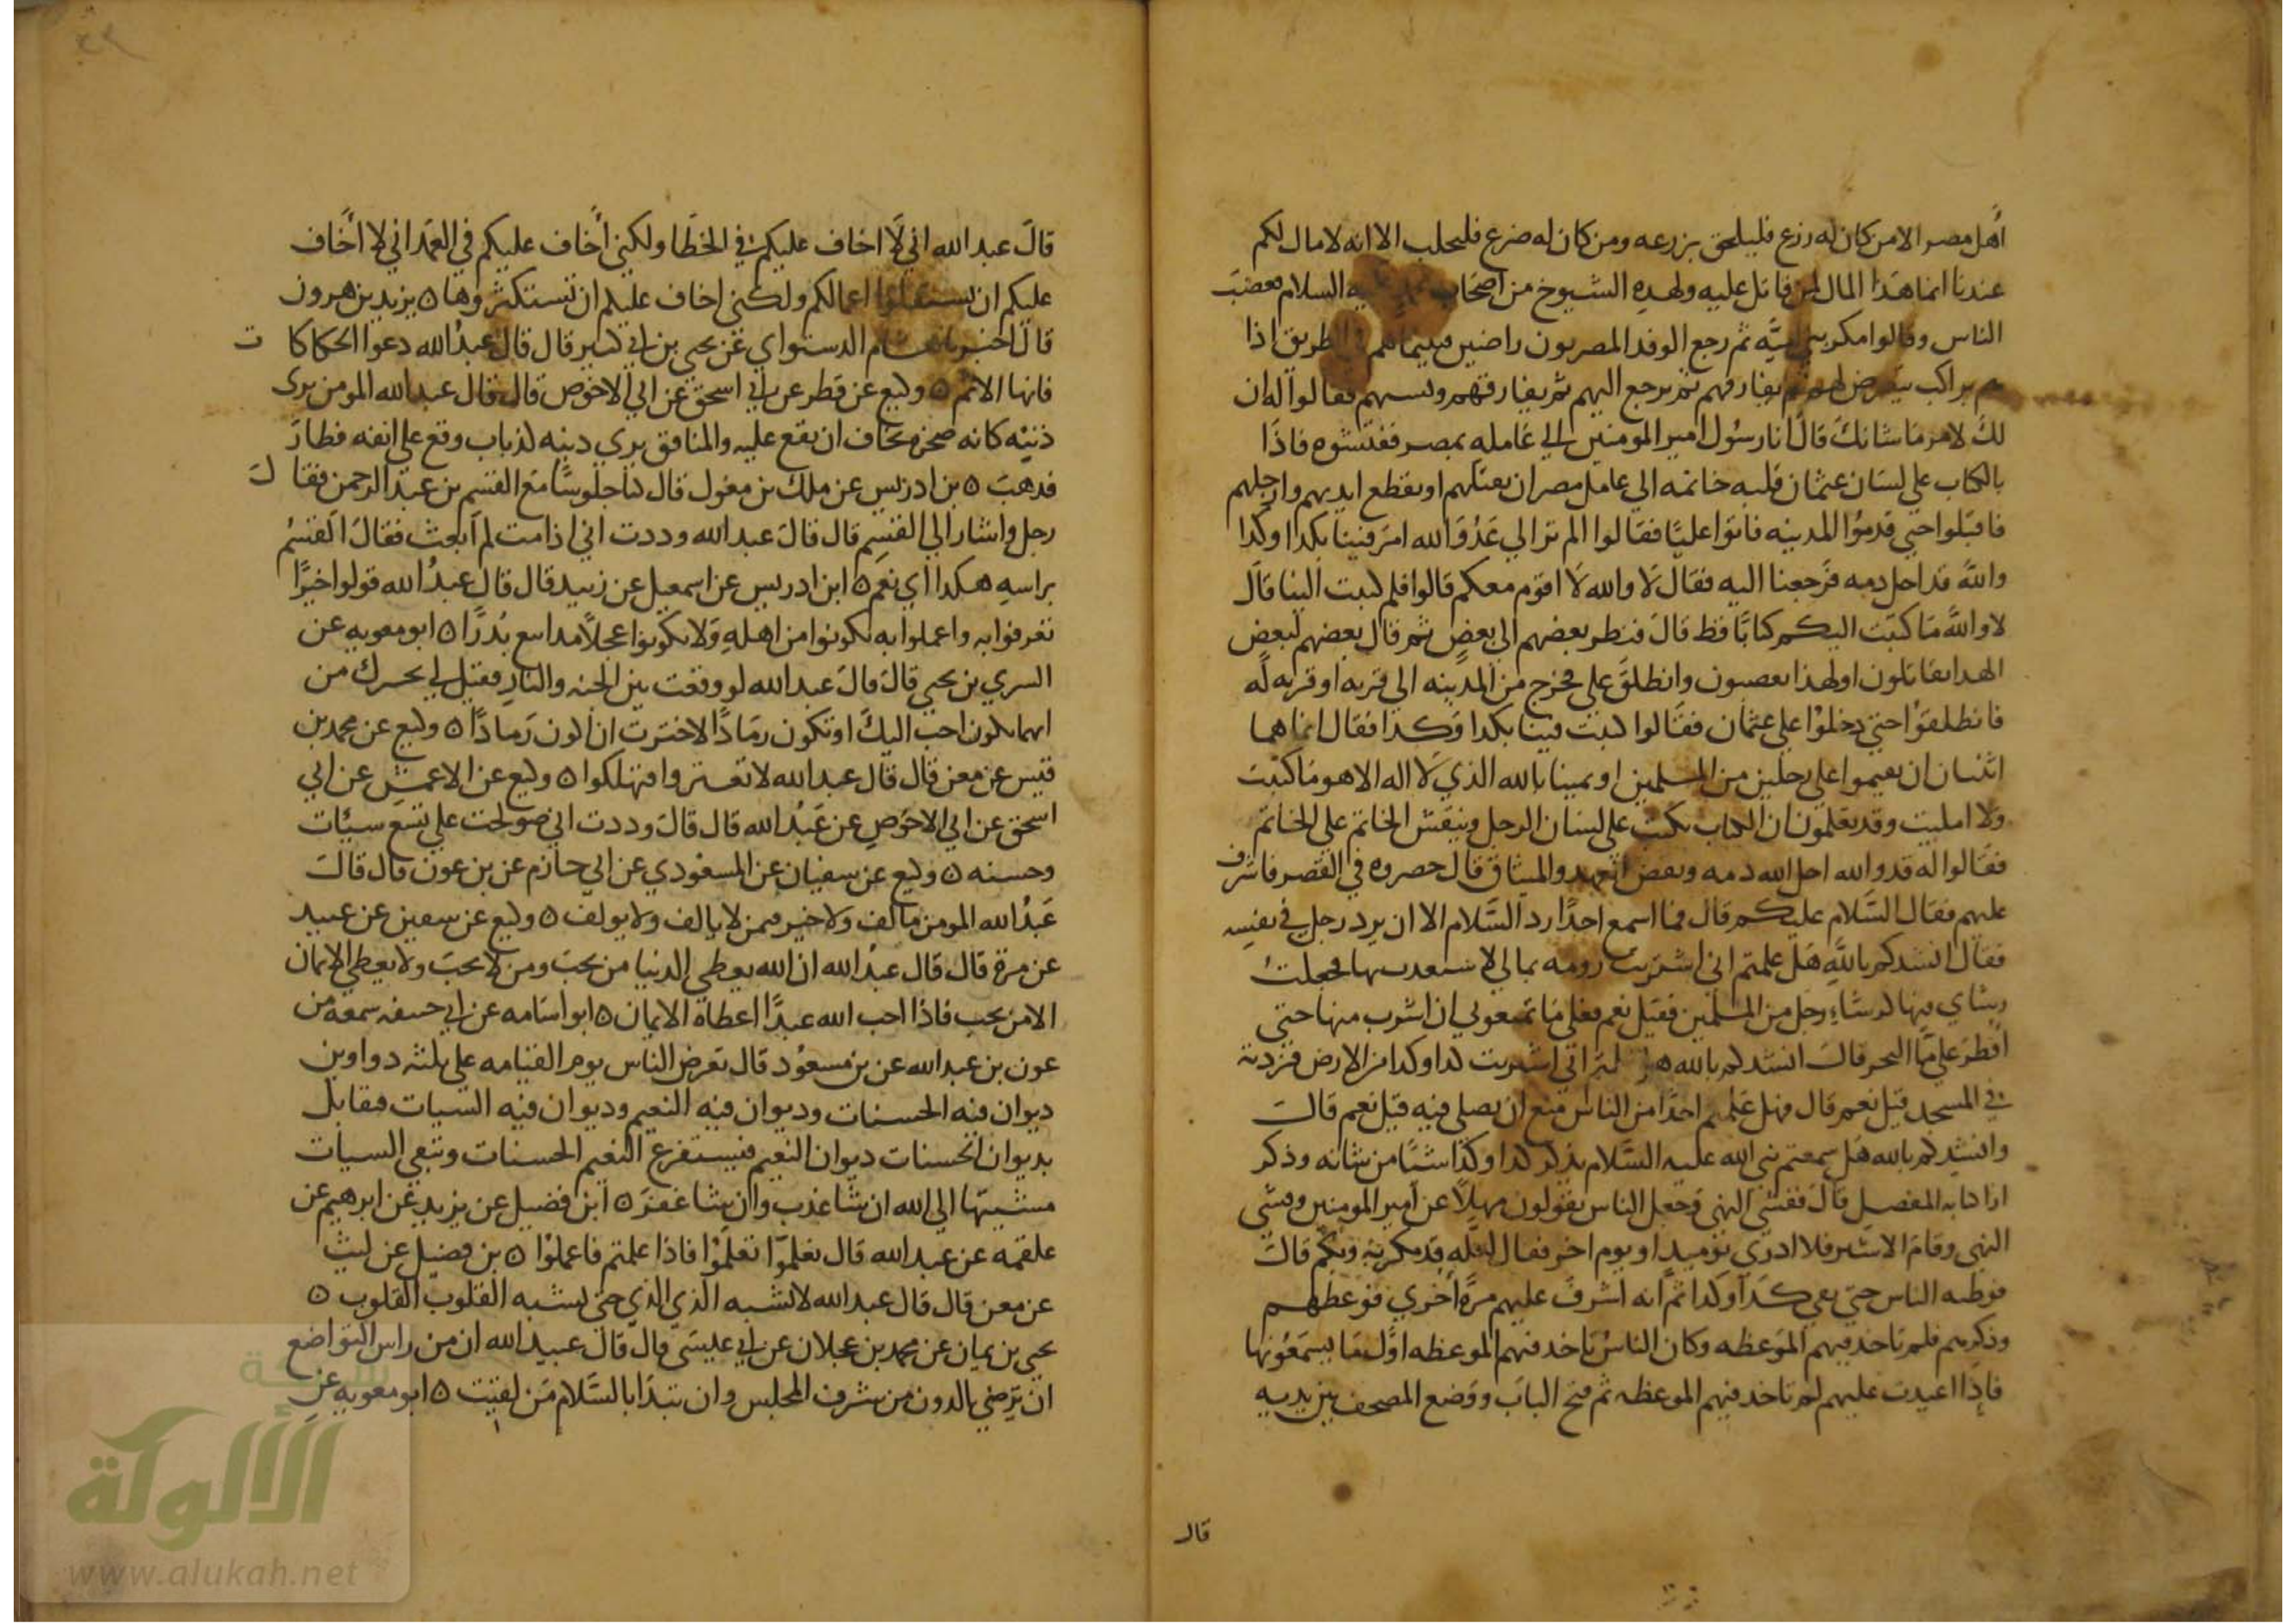 أهل مصر الا من كان له زرع فليلحق بزرعه ومن كان له ضرع فليحلب الا انه لا مال لكم
عندنا انما هذا المال لمن قاتل عليه ولهذه الشيوخ من اصحاب محمد عليه السلام فغضبَ
الناس وقالوا مكر بني اميَّه ثم رجع الوفد المصريون راضين فبينما هم في الطريق اذا
هم براكب يتعرض لهم ثم يفارقهم ثم يرجع اليهم ثم يفارقهم ويسبهم فقالوا له ان
لكَ لامر ما شانكَ قال انا رسُول امير المومنين الي عَامله بمصر ففتشوه فاذا
بالكتاب علي لسَان عثمان عليه خاتمه الي عامل مصر ان يقتلهم او يقطع ايديهم وارجلهم
فاقبَلوا حتي قدمُوا المدينه فاتوا عليًا فقالوا الم تر الي عَدُوّ الله امرَ فينا بكدا وكدا
واللهُ قد احل دمه فرجعنا اليه فقال لا والله لا اقوم معكم قالوا فلم كتبت الينا قال
لا واللهِ ما كتبت اليكم كتابًا قط قالَ فنظر بعضهم الي بعضٍ ثم قال بعضهم لبعض
الهدا تقاتلون او لهذا تغضبون وانطلقَ علي فخرج من المدينه الي قريه او قريه له
فانطلقوُا حتي دخلوُا علي عثمان فقالوا كتبت فينا بكدا وكدا فقال انما هما
اثنتان ان تقيموا علي رجلين من المسلمين او يمينا بالله الذي لا اله الا هو ما كتبتُ
ولا امليت وقد تعلمون ان الكتاب يكتب علي لسان الرجل وينقش الخاتم علي الخاتم
فقالوا له قد والله احل الله دمه ونقض العهد والميثاق قال حصروه في القصر فاشرف
عليهم فقال السَّلام عليكم قال فما اسمع احدًا رد السَّلام الا ان يرد رجل في نفسِه
فقال انشدكم باللَّهِ هل علمتم اني اشتريتُ رومه بمالي لاستعدب بها فجعلتُ
رشاي فيها كرشاءِ رجل من المسلمين فقيل نعم فعلي مَا تمنعوني ان اشرب منها حتي
أفطر علي مَاء البحر قالَ انشدكم بالله هل علمتم اني اشتريت كدا وكدا من الارض فزدته
في المسجد قيل نعم قال فهل علمتم احدًا من الناس منع ان يصلي فيه قيل نعم قالَ
وانشدكم بالله هل سمعتم نبي الله عليه السَّلام يذكر كدا وكذا شيئًا من شانه وذكر
اذا كتابه المفصل قالَ ففشي النهي فجعل الناس يقولون مهلًا عن امير المومنين وفشي
النهي وقام الاشتر فلا ادري يوميدٍ او يوم اخر فقال لعله قد مكر به وبكم قالَ
فوطيه الناس حتي لقي كدا وكدا ثم انه اشرف عليهم مرة أخري فوعظهم
وذكرهم فلم تاخد فيهم الموعظه وكان الناسُ تاخد فيهم الموعظه اوَّل ما يسمَعُونها
فاذا اعيدت عليهم لم تاخد فيهم الموعظه ثم فتح البابَ ووضع المصحف بين يديه
قال
قالَ عبد الله اني لا اخاف عليكم في الخطا ولكني أخاف عليكم في العمَد اني لا أخاف
عليكم ان تستقلوا اعمالكم ولكني اخاف عليكم ان تستكثروها ٥ يزيد بن هرون
قالَ اخبرنا هشام الدستواي عن يحيي بن ابي كثير قال قال عبدُ الله دعوا الحكاكات
فانها الاثم ٥ وكيع عن فطر عن ابي اسحق عن ابي الاحوص قال قال عبد الله المومن يري
ذنبَه كانه صخره يخاف ان يقع عليه والمنافق يري دينه كذباب وقع علي انفه فطارَ
فدهبَ ٥ بن ادريس عن ملك بن مغول قال كنا جلوسًا مَع القسم بن عبد الرحمن فقال
رجل واشار الي القسِم قال قالَ عبد الله وددت اني اذا مت لم أبعث فقالَ القسمُ
براسهِ هكدا اي نعم ٥ ابن ادريس عن اسمعيل عن زبيد قال قال عبدُ الله قولوا خيرًا
تعرفوا به واعملوا به تكونوا من اهلهِ ولا تكونوا عجلًا مداييع بُذرًا ٥ ابو معويه عن
السري بن يحيي قالَ قالَ عبد الله لو وقفت بين الجنه والنارِ فقيل لي نخيرك من
ايهما تكون احب اليكَ او تكون رمَادًا لاخترت ان اكون رَمادًا ٥ وكيع عن محمد بن
قيس عن معن قال قال عبد الله لا تفترقوا فتهلكوا ٥ وكيع عن الاعمش عن ابي
اسحق عن ابي الاحوَص عن عَبْد الله قال قالَ وددت اني صولحت علي تسع سيئات
وحسنه ٥ وكيع عن سفيان عن المسعُودي عن ابي حازم عن بن عون قال قالَ
عَبْدُ الله المومن مالف ولا خير فيمن لا يالف ولا يولف ٥ وكيع عن سفين عن عبيد
عن مرة قال قال عبْدُ الله ان الله يعطي الدنيا من يحبَ ومن لا يحبَ ولا يعطي الايمان
الا من يحب فاذا احب الله عبدًا اعطاه الايمان ٥ ابو اسَامه عن ابي حنيفه سمعه من
عون بن عبد الله عن بن مسعُود قال تعرض الناس يوم القيامه علي ثلثه دواوين
ديوان فيه الحسنات وديوان فيه النعيم وديوان فيه السيات فيقابل
بديوان الحسنات ديوان النعيم فيستفرغ النعيم الحسنات وتبقي السيات
مشيئتها الي الله ان شا عذب وان شا غفرَ ٥ ابن فضيل عن يزيد عن ابرهيم عن
علقمه عن عبد الله قال تعلموا تعلمُوا فاذا علمتم فاعملوُا ٥ بن فضيل عن ليث
عن معن قال قال عبد الله لا يشبه الذي الذي حتي تشبه القلوب القلوب ٥
يحيي بن يمان عن محمد بن عجلان عن ابي عيسَي قالَ قالَ عبد الله ان من راس التواضع
ان ترضي بالدون من شرف المجلس وان تبدا بالسَّلام مَن لقيت ٥ ابو معويه عنِ
شبكة
الألوكة
www.alukah.net